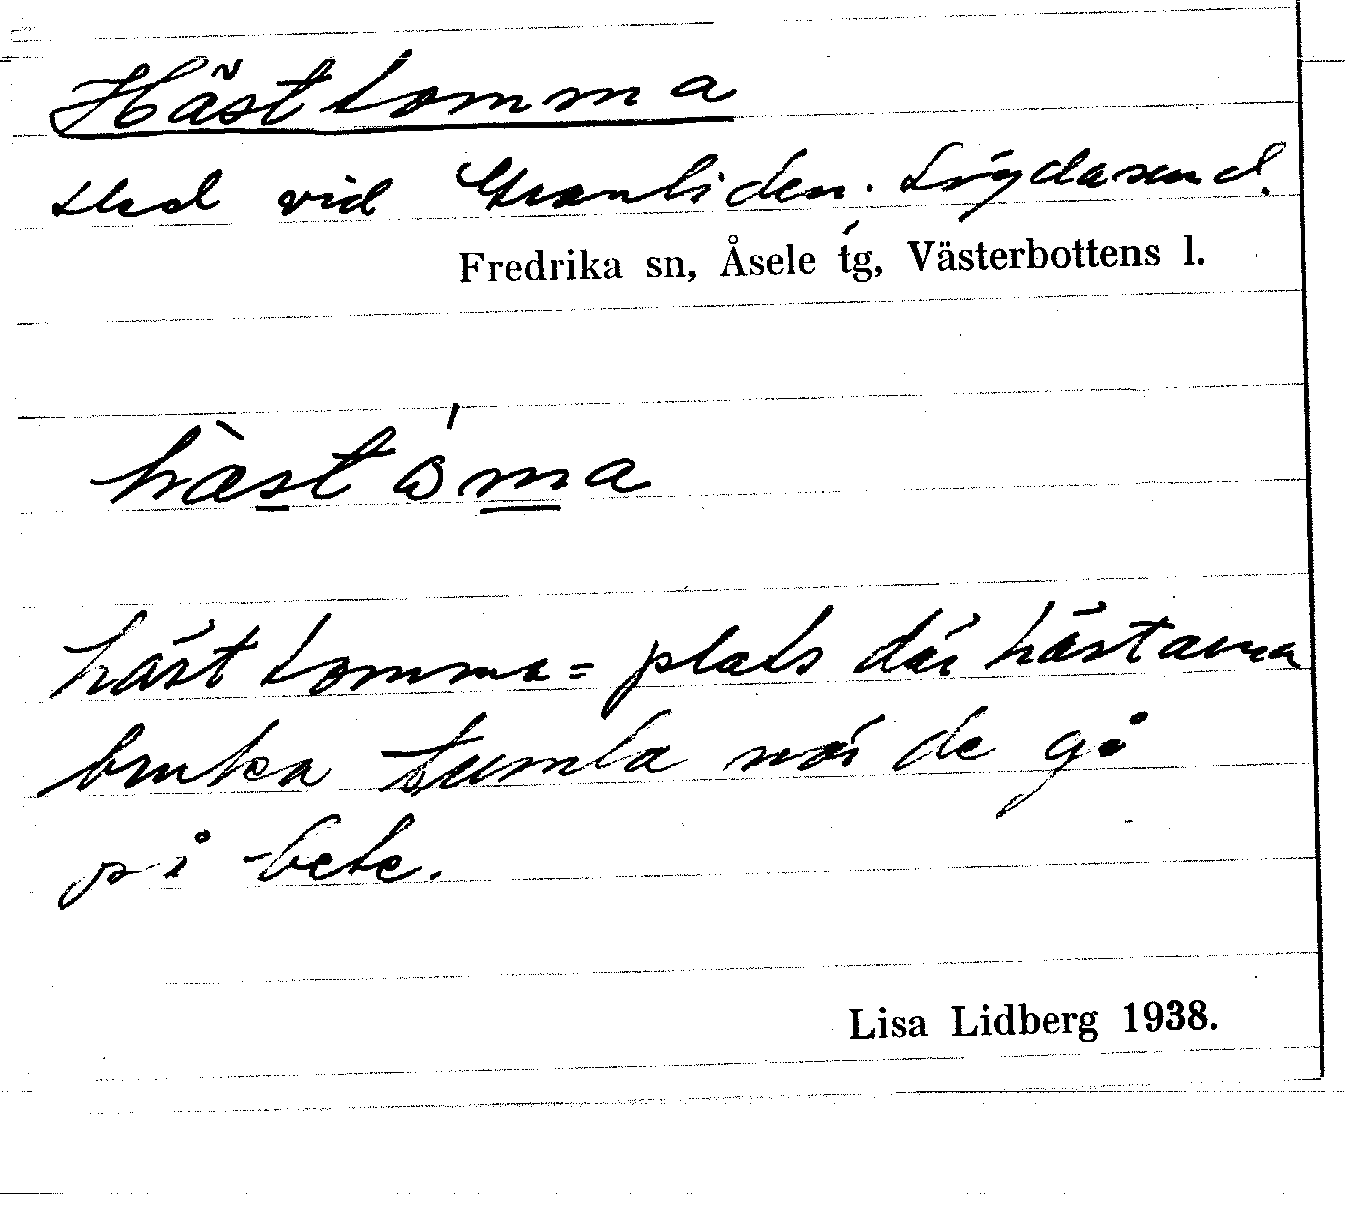 Hästtomma
sted vid Granliden. Lögdasund.
Fredrika sn, Åsele tg, Västerbottens l.
hästoma
hästtomma = plats där hästarna
bruka tumla när de gå
på bete.
Lisa Lidberg 1938.